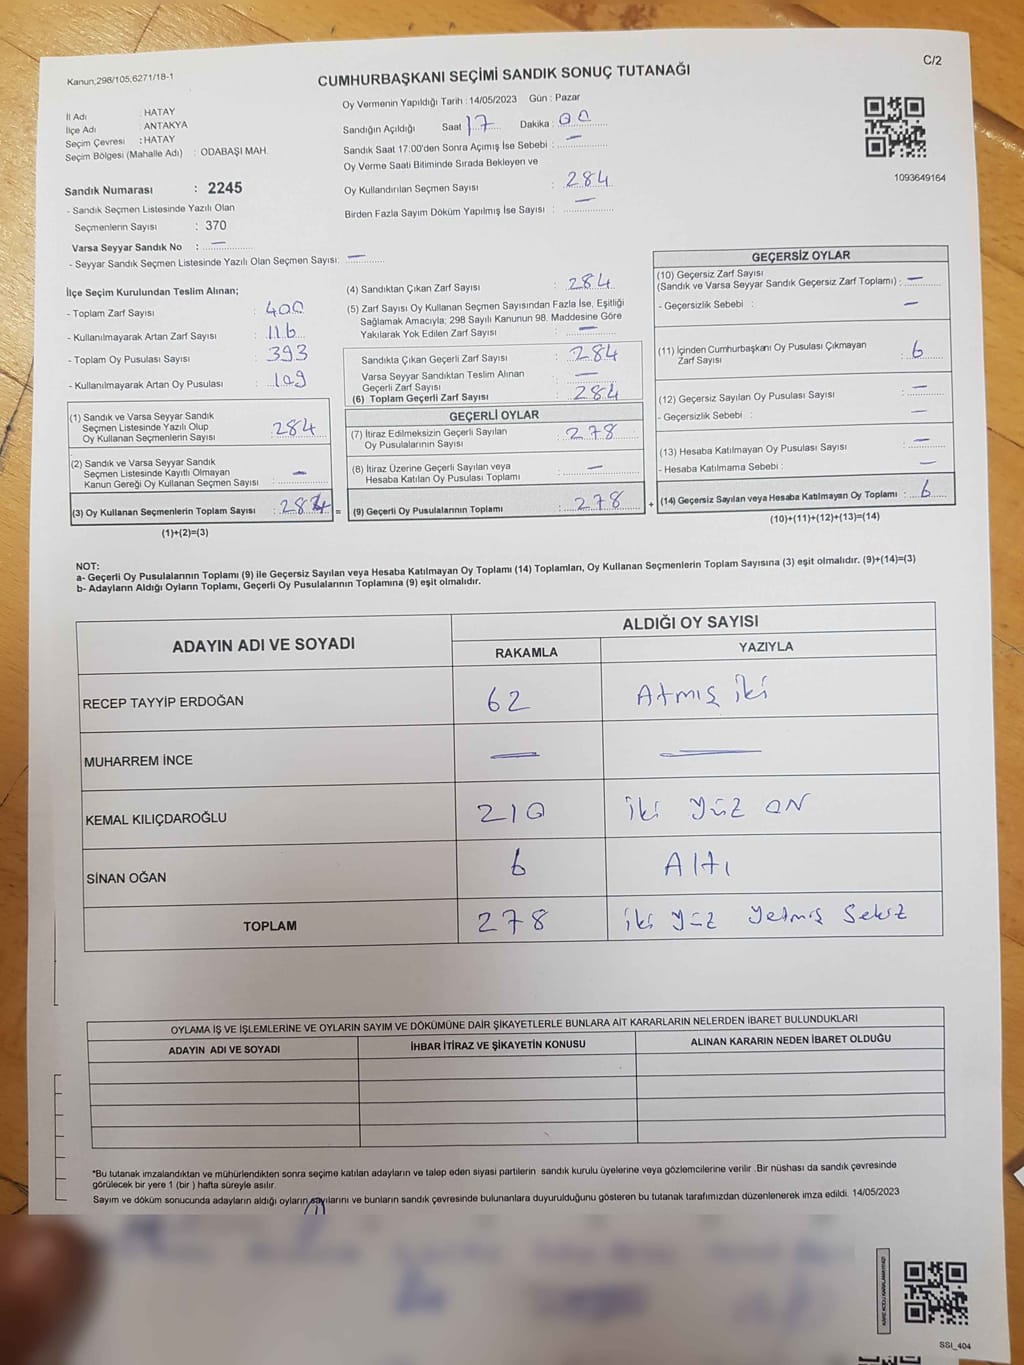 Kanun;298/105,6271/18-1
CUMHURBAŞKANI SEÇİMİ SANDIK SONUÇ TUTANAĞI
C/2
İl Adı : HATAY
İlçe Adı : ANTAKYA
Seçim Çevresi : HATAY
Seçim Bölgesi (Mahalle Adı) : ODABAŞI MAH.
Sandık Numarası : 2245
- Sandık Seçmen Listesinde Yazılı Olan
Seçmenlerin Sayısı : 370
Varsa Seyyar Sandık No : —
- Seyyar Sandık Seçmen Listesinde Yazılı Olan Seçmen Sayısı: —
Oy Vermenin Yapıldığı Tarih : 14/05/2023 Gün : Pazar
Sandığın Açıldığı Saat 17 Dakika : 00
Sandık Saat 17:00'den Sonra Açımış İse Sebebi : —
Oy Verme Saati Bitiminde Sırada Bekleyen ve
Oy Kullandırılan Seçmen Sayısı : 284
Birden Fazla Sayım Döküm Yapılmış İse Sayısı : —
1093649164
İlçe Seçim Kurulundan Teslim Alınan;
- Toplam Zarf Sayısı : 400
- Kullanılmayarak Artan Zarf Sayısı : 116
- Toplam Oy Pusulası Sayısı : 393
- Kullanılmayarak Artan Oy Pusulası : 109
(1) Sandık ve Varsa Seyyar Sandık
Seçmen Listesinde Yazılı Olup
Oy Kullanan Seçmenlerin Sayısı : 284
(2) Sandık ve Varsa Seyyar Sandık
Seçmen Listesinde Kayıtlı Olmayan
Kanun Gereği Oy Kullanan Seçmen Sayısı : —
(3) Oy Kullanan Seçmenlerin Toplam Sayısı : 284 =
(1)+(2)=(3)
(4) Sandıktan Çıkan Zarf Sayısı : 284
(5) Zarf Sayısı Oy Kullanan Seçmen Sayısından Fazla İse, Eşitliği
Sağlamak Amacıyla; 298 Sayılı Kanunun 98. Maddesine Göre
Yakılarak Yok Edilen Zarf Sayısı : —
Sandıkta Çıkan Geçerli Zarf Sayısı : 284
Varsa Seyyar Sandıktan Teslim Alınan
Geçerli Zarf Sayısı : —
(6) Toplam Geçerli Zarf Sayısı : 284
GEÇERLİ OYLAR
(7) İtiraz Edilmeksizin Geçerli Sayılan
Oy Pusulalarının Sayısı : 278
(8) İtiraz Üzerine Geçerli Sayılan veya
Hesaba Katılan Oy Pusulası Toplamı : —
(9) Geçerli Oy Pusulalarının Toplamı : 278 +
GEÇERSİZ OYLAR
(10) Geçersiz Zarf Sayısı
(Sandık ve Varsa Seyyar Sandık Geçersiz Zarf Toplamı) : —
- Geçersizlik Sebebi : —
(11) İçinden Cumhurbaşkanı Oy Pusulası Çıkmayan
Zarf Sayısı : 6
(12) Geçersiz Sayılan Oy Pusulası Sayısı : —
- Geçersizlik Sebebi : —
(13) Hesaba Katılmayan Oy Pusulası Sayısı : —
- Hesaba Katılmama Sebebi : —
(14) Geçersiz Sayılan veya Hesaba Katılmayan Oy Toplamı : 6
(10)+(11)+(12)+(13)=(14)
NOT:
a- Geçerli Oy Pusulalarının Toplamı (9) ile Geçersiz Sayılan veya Hesaba Katılmayan Oy Toplamı (14) Toplamları, Oy Kullanan Seçmenlerin Toplam Sayısına (3) eşit olmalıdır. (9)+(14)=(3)
b- Adayların Aldığı Oyların Toplamı, Geçerli Oy Pusulalarının Toplamına (9) eşit olmalıdır.
ADAYIN ADI VE SOYADI
ALDIĞI OY SAYISI
RAKAMLA YAZIYLA
RECEP TAYYİP ERDOĞAN 62 Atmış iki
MUHARREM İNCE — —
KEMAL KILIÇDAROĞLU 210 iki yüz ON
SİNAN OĞAN 6 Altı
TOPLAM 278 iki yüz yetmiş Sekiz
OYLAMA İŞ VE İŞLEMLERİNE VE OYLARIN SAYIM VE DÖKÜMÜNE DAİR ŞİKAYETLERLE BUNLARA AİT KARARLARIN NELERDEN İBARET BULUNDUKLARI
ADAYIN ADI VE SOYADI İHBAR İTİRAZ VE ŞİKAYETİN KONUSU ALINAN KARARIN NEDEN İBARET OLDUĞU
*Bu tutanak imzalandıktan ve mühürlendikten sonra seçime katılan adayların ve talep eden siyasi partilerin sandık kurulu üyelerine veya gözlemcilerine verilir .Bir nüshası da sandık çevresinde
görülecek bir yere 1 (bir ) hafta süreyle asılır.
Sayım ve döküm sonucunda adayların aldığı oyların sayılarını ve bunların sandık çevresinde bulunanlara duyurulduğunu gösteren bu tutanak tarafımızdan düzenlenerek imza edildi. 14/05/2023
SSI_404